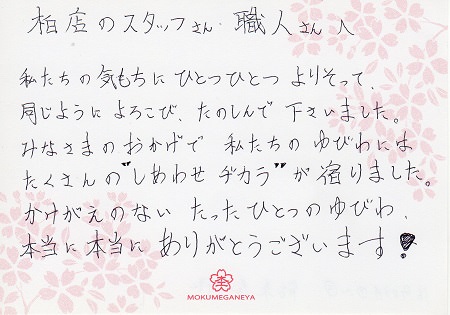 柏店のスタッフさん 職人さんへ
私たちの気もちに ひとつひとつ よりそって、
同じように よろこび、たのしんで 下さいました。
みなさまの おかげで 私たちの ゆびわには
たくさんの"しあわせ ヂカラ"が 宿りました。
かけがえのない たったひとつの ゆびわ、
本当に 本当に ありがとうございます!
MOKUMEGANEYA